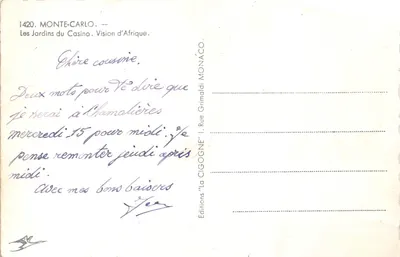 1420. MONTE-CARLO. —
Les Jardins du Casino. Vision d'Afrique.
Chère cousine.
Deux mots pour te dire que
je serai à Chamalières
mercredi 15 pour midi. Je
pense remonter jeudi après
midi.
Avec mes bons baisers
Editions "La CIGOGNE" 1, Rue Grimaldi MONACO.